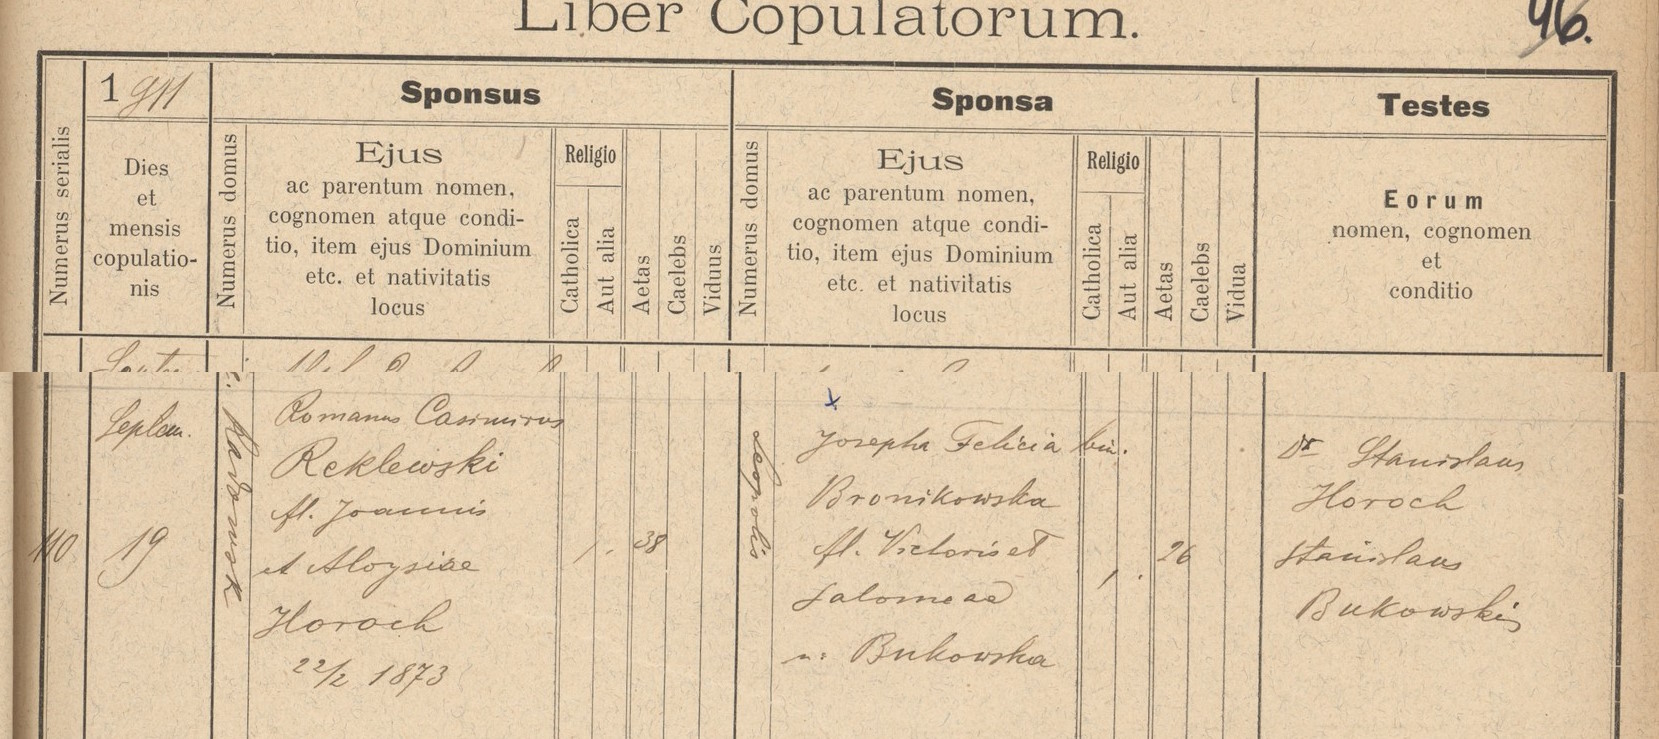 Liber Copulatorum.
46.
Numerus serialis
1911
Dies
et
mensis
copulatio-
nis
Sponsus
Numerus domus
Ejus
ac parentum nomen,
cognomen atque condi-
tio, item ejus Dominium
etc. et nativitatis
locus
Religio
Catholica
Aut alia
Aetas
Caelebs
Viduus
Sponsa
Numerus domus
Ejus
ac parentum nomen,
cognomen atque condi-
tio, item ejus Dominium
etc. et nativitatis
locus
Religio
Catholica
Aut alia
Aetas
Caelebs
Vidua
Testes
Eorum
nomen, cognomen
et
conditio
110
Septem.
19
Romanus Casimirus
Reklewski
fl. Joannis
et Aloysiae
Horoch
22/2 1873
1.
38
Leopolis
x
Josepha Felicia bin.
Bronikowska
fl. Victoris et
Salomeae
n: Bukowska
1.
26
Dr Stanislaus
Horoch
Stanislaus
Bukowski